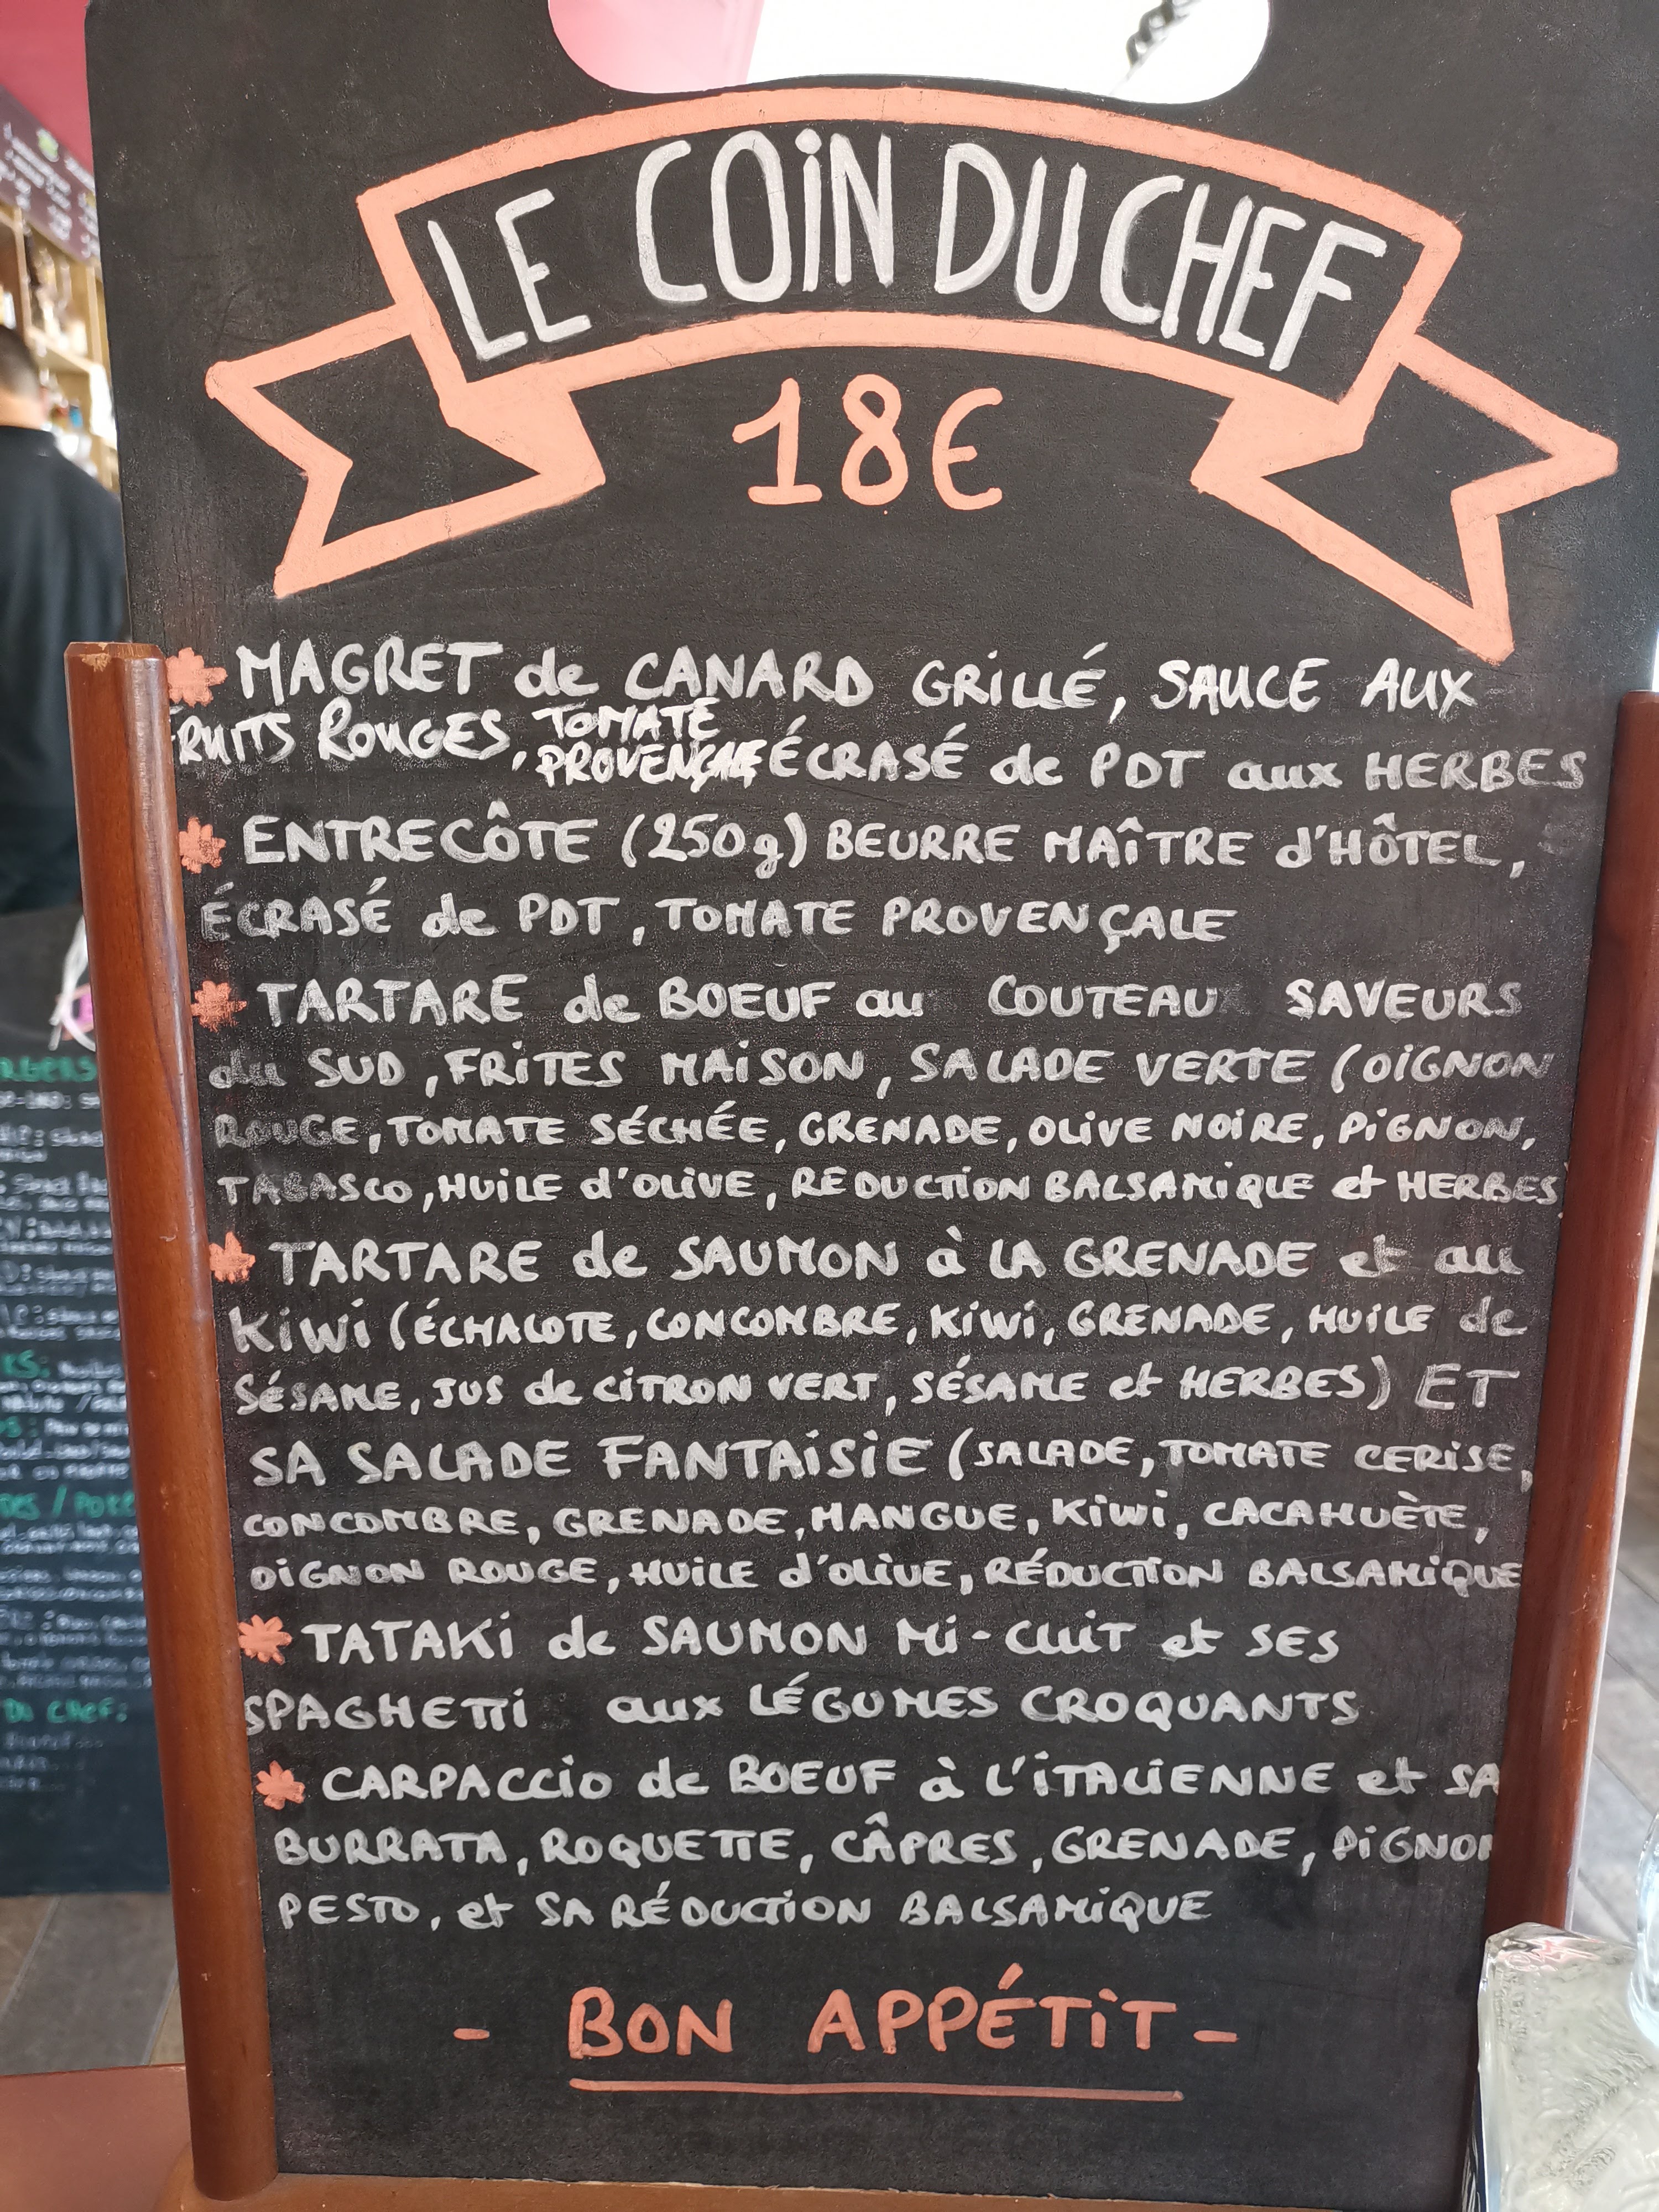 LE COIN DU CHEF
18€
MAGRET de CANARD GRILLÉ, SAUCE AUX
FRUITS ROUGES, TOMATE PROVENÇALE ÉCRASÉ de PDT aux HERBES
ENTRECÔTE (250g) BEURRE MAÎTRE d'HÔTEL,
ÉCRASÉ de PDT, TOMATE PROVENÇALE
TARTARE de BOEUF au COUTEAU SAVEURS
du SUD, FRITES MAISON, SALADE VERTE (OIGNON
ROUGE, TOMATE SÉCHÉE, GRENADE, OLIVE NOIRE, PIGNON,
TABASCO, HUILE d'OLIVE, REDUCTION BALSAMIQUE et HERBES)
TARTARE de SAUMON à LA GRENADE et au
KIWI (ÉCHALOTE, CONCOMBRE, KIWI, GRENADE, HUILE de
SÉSAME, JUS de CITRON VERT, SÉSAME et HERBES) ET
SA SALADE FANTAISIE (SALADE, TOMATE CERISE,
CONCOMBRE, GRENADE, MANGUE, KIWI, CACAHUÈTE,
OIGNON ROUGE, HUILE d'OLIVE, RÉDUCTION BALSAMIQUE
TATAKI de SAUMON MI-CUIT et SES
SPAGHETTI aux LÉGUMES CROQUANTS
CARPACCIO de BOEUF à L'ITALIENNE et SA
BURRATA, ROQUETTE, CÂPRES, GRENADE, PIGNON
PESTO, et SA RÉDUCTION BALSAMIQUE
- BON APPÉTIT -
DU CHEF: